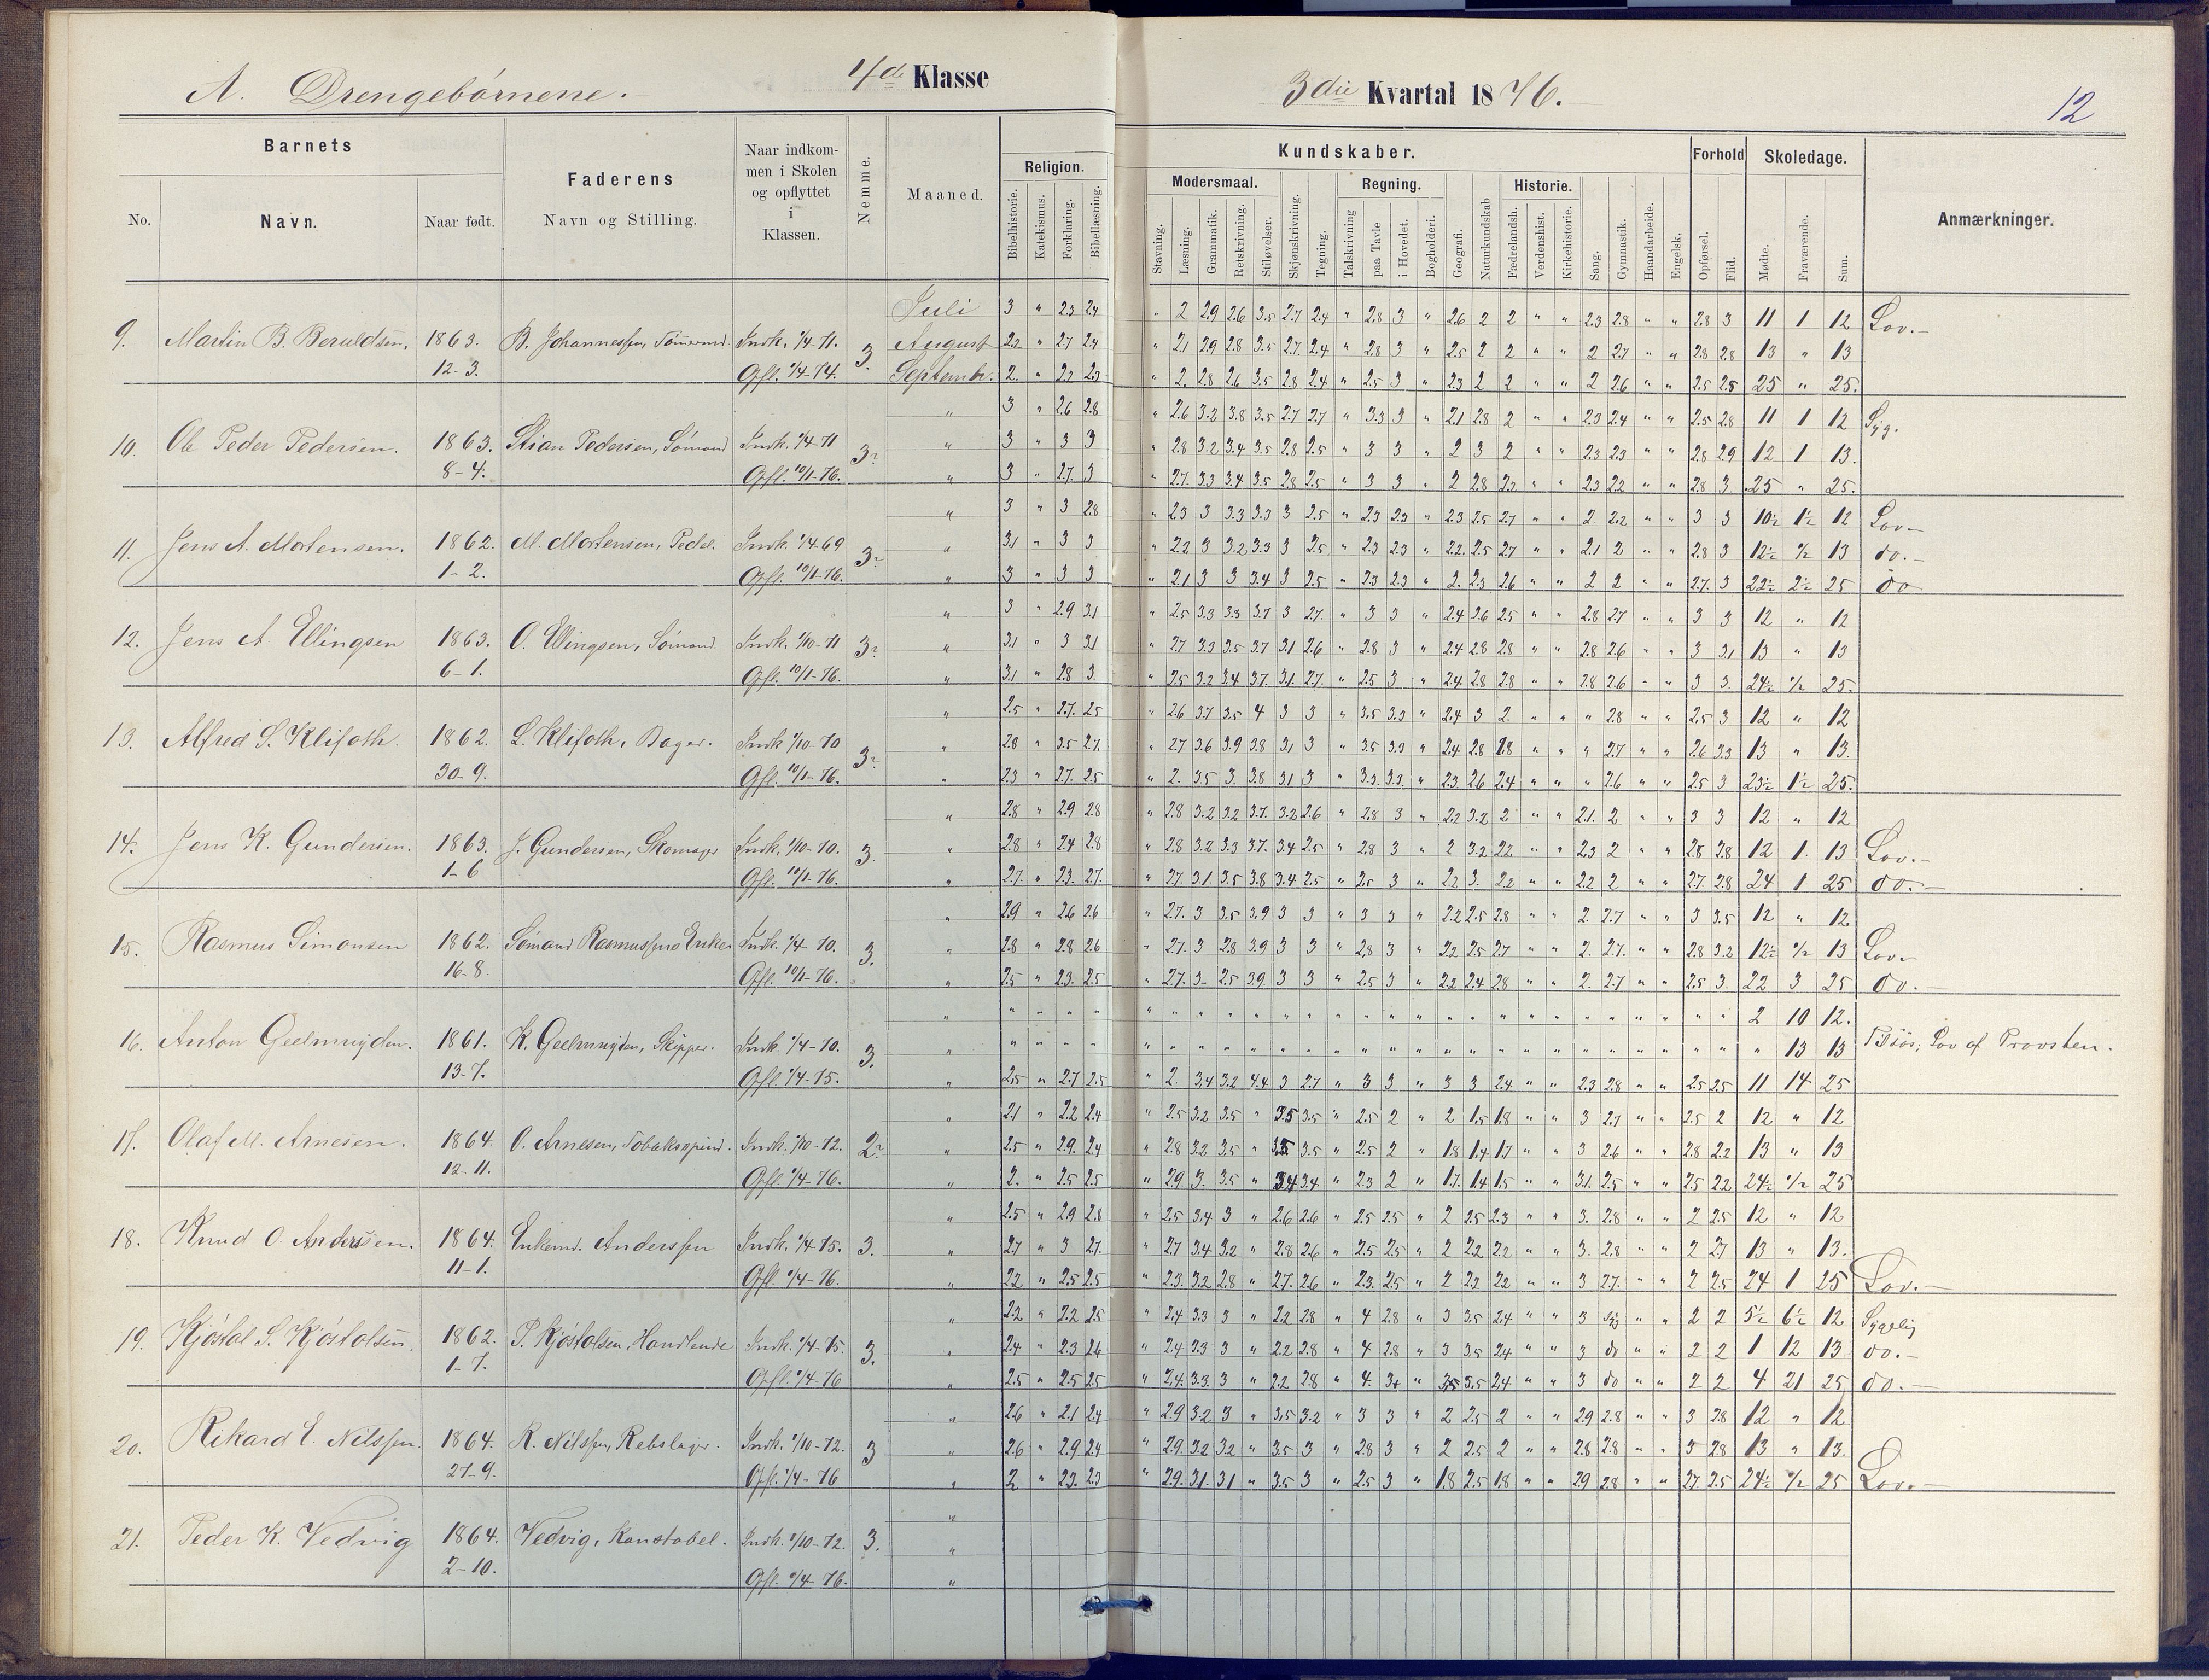 A. Drengebørnene. 4de Klasse
3die Kvartal 1876.
12
Barnets
Faderens
Naar indkommen i Skolen og opflyttet i Klassen.
Nemme.
Maaned.
Religion.
Kundskaber.
Forhold
Skoledage.
Anmærkninger.
Modersmaal.
Regning.
Historie.
No.
Navn.
Naar født.
Navn og Stilling.
Bibelhistorie. Katekismus. Forklaring. Bibellæsning.
Stavning. Læsning. Grammatik. Retskrivning. Stiløvelser. Skjønskrivning. Tegning. Talskrivning paa Tavle i Hovedet. Bogholderi. Geografi. Naturkundskab Fædrelandsh. Verdenshist. Kirkehistorie. Sang. Gymnastik. Haandarbeide. Engelsk. Opførsel. Flid. Mødte. Fraværende. Sum.
Juli 3 " 2.3 2.4 " 2 2.9 2.6 3.5 2.7 2.4 " 2.8 3 " 2.6 2 2 " " 2.3 2.8 " " 2.8 3 11 1 12 Lov.
9. Martin B. Beruldsen. 1863. B. Johannessen, Indk. 1/4 71. 3. August 2.2 " 2.7 2.4 " 2.1 2.9 2.8 3.5 2.7 2.4 " 2.8 3 " 2.5 2 2 " " 2 2.7 " " 2.8 2.8 13 " 13
12-3. Opfl. 1/4-74. Septembr. 2. " 2.2 2.3 " 2. 2.8 2.6 3.5 2.8 2.4 " 2.5 3 " 2.3 2 2 " " 2 2.6 " " 2.5 2.5 25 " 25.
" 3 " 2.6 2.8 " 2.6 3.2 3.8 3.5 2.7 2.7 " 3.3 3 " 2.1 2.8 2 " " 2.3 2.4 " " 2.5 2.8 11 1 12 Syg.
10. Ole Peder Pedersen. 1863. Stian Pedersen, Sømand Indk. 1/4-71 3 " 3 " 3 3 " 2.8 3.2 3.4 3.5 2.8 2.5 " 3 3 " 2 3 2 " " 2.3 2.3 " " 2.8 2.9 12 1 13.
8-4. Opfl. 10/1-76. " 3 " 2.7. 3 " 2.7. 3.3 3.4 3.5 2.8 2.5 " 3 3 " 2 2.8 2.2 " " 2.3 2.2 " " 2.8 3. 25 " 25.
" 3 " 3 2.8 " 2.3 3 3.3 3.3 3 2.5 " 2.3 2.3 " 2.3 2.5 2.7 " " 2 2.2 " " 3 3 10½ 1½ 12 Lov.
11. Jens A. Mortensen. 1862. M. Mortensen, Pedel. Indk. 1/4 69 3 " 3.1 " 3 3 " 2.2 3 3.2 3.3 3 2.5 " 2.3 2.3 " 2.2. 2.5 2.7 " " 2.1 2 " " 2.8 3 12½ ½ 13 do.
1-2. Opfl. 10/1-76. " 3 " 3 3 " 2.1 3 3 3.4 3 2.5 " 2.3 2.3 " 2. 2.3 2.6 " " 2 2 " " 2.7. 3 22½ 2½ 25 do
" 3 " 2.9 3.1 " 2.5 3.3 3.3 3.7 3 2.7. " 3 3 " 2.4 2.6 2.5 " " 2.8 2.7 " " 3 3 12 " 12
12. Jens A. Ellingsen 1863. O. Ellingsen, Sømand. Indk. 1/10-71 3 " 3.1 " 3 3.1 " 2.7 3.3 3.5 3.7 3.1 2.6 " 2.8 3 " 2.4 2.8 2.8 " " 2.8 2.6 " " 3 3.1 13 " 13
6-1. Opfl. 10/1-76. " 3.1 " 2.8 3. " 2.5 3.2 3.4 3.7. 3.1 2.7. " 2.5 3 " 2.4 2.8 2.8 " " 2.8 2.6 " " 3 3. 24½ ½ 25.
" 2.5 " 2.7. 2.5 " 2.6 3.7 3.5 4 3 3 " 3.5 3.3 " 2.4 3 2. " " " 2.8 " " 2.5 3 12 " 12
13. Alfred S. Klifoth. 1862. L. Klifoth, Bager. Indk 1/10-70 3 " 2.8 " 3.5 2.7. " 2.7 3.6 3.9 3.8 3.1 3 " 3.5 3.3 " 2.4 2.8 1.8 " " " 2.7 " " 2.6 3.3 13 " 13.
30-9. Opfl. 10/1-76. " 2.3 " 2.7. 2.5 " 2. 3.5 3. 3.8 3.1 3 " 3.3 3.3. " 2.3. 2.6 2.4 " " " 2.6 " " 2.5 3 23½ 1½ 25.
" 2.8 " 2.9 2.8 " 2.8 3.2 3.2 3.7. 3.2 2.6 " 2.8 3 " 2.2 3.2 2 " " 2.1. 2 " " 3 3 12 " 12
14. Jens K. Gundersen. 1863. J. Gundersen, Skomager Indk. 1/10-70. 3. " 2.8 " 2.4 2.8 " 2.8 3.2 3.3 3.7. 3.4 2.5 " 2.8 3 " 2 3.2 2.2 " " 2.3 2 " " 2.8 2.8 12 1. 13 Lov.
1-6 Opfl. 10/1-76. " 2.7. " 2.3. 2.7. " 2.7. 3.1. 3.5 3.8 3.4 2.5 " 2.5 3 " 2.2 3. 2.2 " " 2.2 2 " " 2.7. 2.8 24 1 25 do.
" 2.9 " 2.6 2.6 " 2.7. 3 3.5 3.9 3 3 " 3 3 " 2.2 2.5 2.8 " " 2. 2.7 " " 3 3.5 12 " 12
15. Rasmus Simonsen 1862. Sømand Rasmussens Enke Indk. 1/4-70. 3. " 2.8 " 2.8 2.6 " 2.7. 3 2.8 3.9 3 3 " 2.8 3 " 2.2 2.5 2.7 " " 2. 2.7. " " 2.8 3.2 12½ ½ 13 Lov.
16-8. Opfl. 10/1-76. " 2.5 " 2.3. 2.5 " 2.7. 3. 2.5 3.9 3 3 " 2.5 3 " 2.2 2.4 2.8 " " 2. 2.7 " " 2.5 3. 22 3 25 do.
" " " " " " " " " " " " " " " " " " " " " " " " " " " 2 10 12.
16. Anton Geelmuyden. 1861. K. Geelmuyden, Skipper. Indk. 1/4-70. 3. " " " " " " " " " " " " " " " " " " " " " " " " " " " " 13 13 Tilsøs, Lov af Provsten.
13-7. Opfl 1/4-75. " 2.5 " 2.7 2.5 " 2. 3.4 3.2 4.4 3 2.7 " 3 3 " 3 3 2.4 " " 2.3 2.8 " " 2.5 2.5 11 14 25
" 2.1 " 2.2 2.4 " 2.5 3.2 3.5 " 3.5 3.5 " 2.5 2 " 2 1.5 1.8 " " 3 2.7 " " 2.5 2 12 " 12
17. Olaf M. Arnesen. 1864. O. Arnesen, Tobakspind. Indk. 1/10-72. 2 " 2.5 " 2.9. 2.4 " 2.8 3.2 3.5 " 3.5 3.5 " 2.5 2 " 1.8 1.4 1.7 " " 3 2.6 " " 2.8 2.2 13 " 13
12-11. Opfl 1/4-76. " 2. " 2.5 2.5 " 2.9. 3. 3.5 " 3.4 3.4 " 2.3 2 " 1.7. 1.4 1.5 " " 3.1. 2.5 " " 2.5 2.2 24½ ½ 25
" 2.5 " 2.9 2.8 " 2.5 3.4 3 " 2.6 2.6 " 2.5 2.5 " 2 2.5 2.3 " " 3. 2.8 " " 2 2.5 12 " 12
18. Knud O. Anderssen. 1864. Enkemd. Anderssen Indk. 1/4 75. 3. " 2.7 " 3 2.7. " 2.7 3.4 3.2 " 2.8 2.6 " 2.5 2.5 " 2 2.2 2.2 " " 3. 2.8 " " 2 2.7 13 " 13.
11-1. Opfl. 1/4-76. " 2.2 " 2.5 2.5 " 2.3. 3.2 2.8 " 2.7. 2.6 " 2.3. 2.5 " 2 2.2 2.2 " " 3 2.7. " " 2 2.5 24 1 25 Lov.
" 2.2 " 2.2 2.5 " 2.4 3.3 3 " 2.2 2.8 " 4 2.8 " 3 3.5 2.4 " " 3 " " 2 2 5½ 6½ 12 Sygelig
19. Kjøstol S. Kjøstolsen. 1862. S. Kjøstolsen, Handlende Indk. 1/4-75. 3. " 2.4 " 2.3 2.6 " 2.4 3.3 3 " 2.2 2.8 " 4 2.8 " 3 3.5 2.4 " " 3 do " " 2 2 1 12 13 do.
1-7. Opfl. 1/4-76 " 2.5 " 2.5 2.5 " 2.4. 3.3. 3 " 2.2 2.8 " 4. 3+ " 3.5 3.5 2.4 " " 3 do " " 2 2 4 21 25 do.
" 2.6 " 2.1 2.4 " 2.9 3.2 3 " 3.5 3.2 " 3 3 " 2 2.5 2 " " 2.9 2.8 " " 3 2.8 12 " 12
20. Rikard E. Nilssen. 1864. R. Nilssen, Rebslager. Indk. 1/10-72. 3 " 2.6 " 2.9 2.4 " 2.9. 3.2 3.2 " 3.5 3 " 2.8 3 " 2 2.5 2 " " 2.8 2.8 " " 3 2.8 13 " 13.
27-9. Opfl. 1/4-76 " 2 " 2.3. 2.3 " 2.9. 3.1. 3.1 " 3.5 3 " 2.5 3 " 1.8 2.5 1.8 " " 2.9 2.8 " " 2.7. 2.5 24½ ½ 25 Lov.
"
21. Peder K. Vedvig 1864. Vedvig, Konstabel. Indk. 1/10-72. 3. "
2-10. Opfl. 1/4-76. "